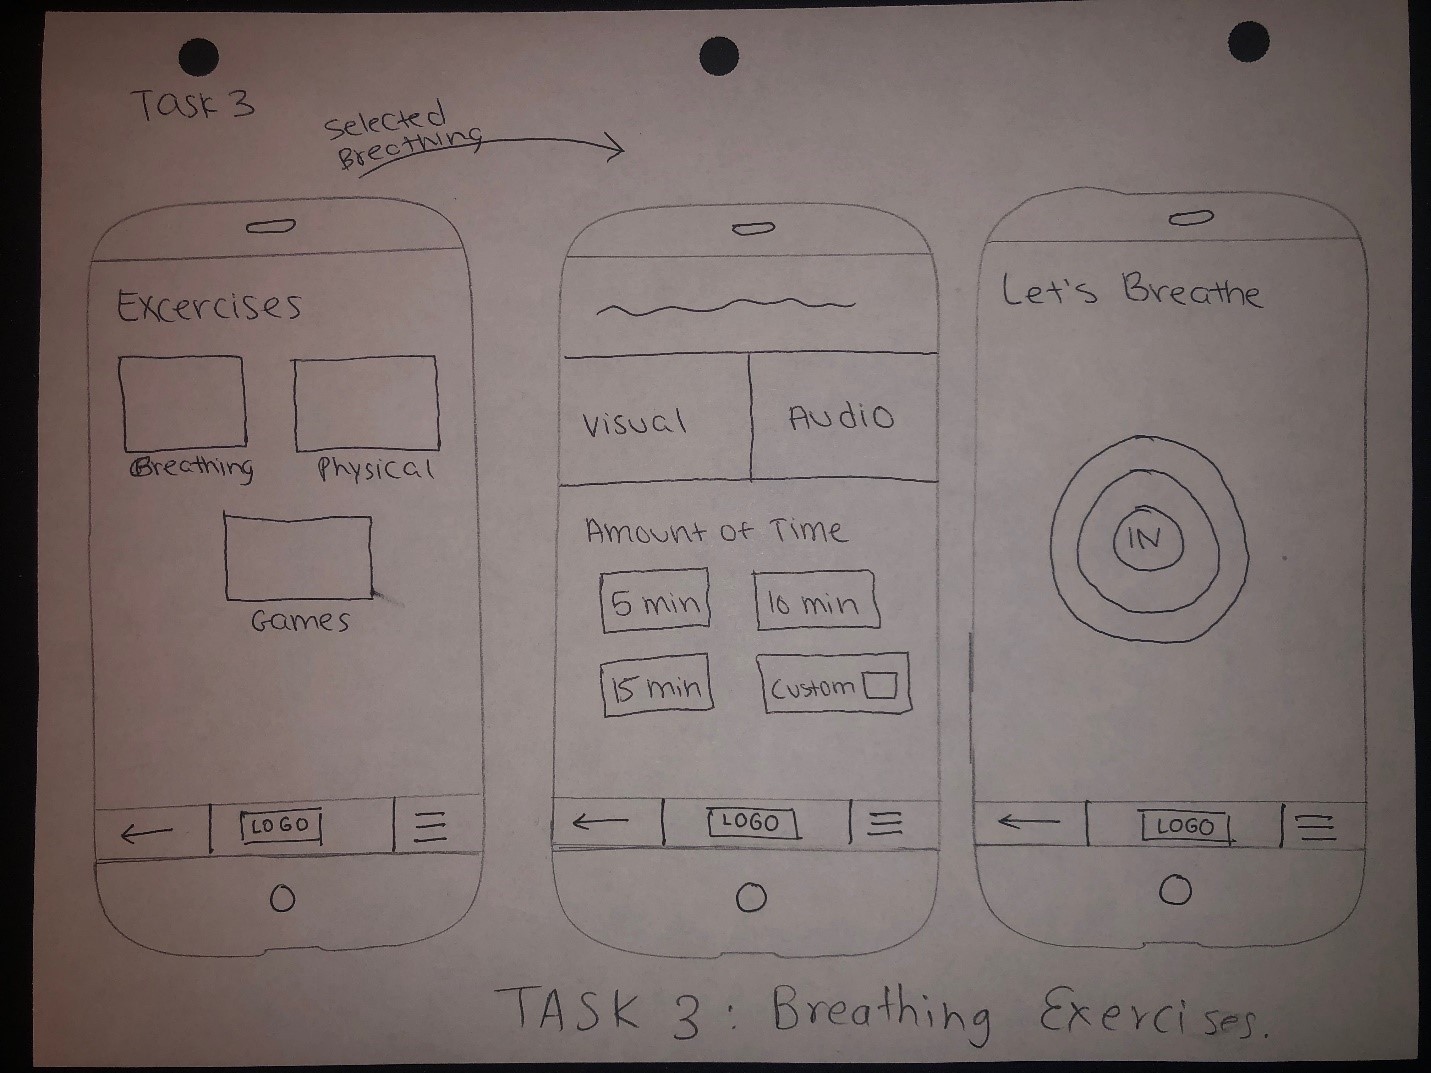 Task 3
Selected
Breathing
Excercises
Breathing
Physical
Games
LOGO
Visual
Audio
Amount of Time
5 min
10 min
15 min
Custom
LOGO
Let's Breathe
IN
LOGO
TASK 3: Breathing Exercises.